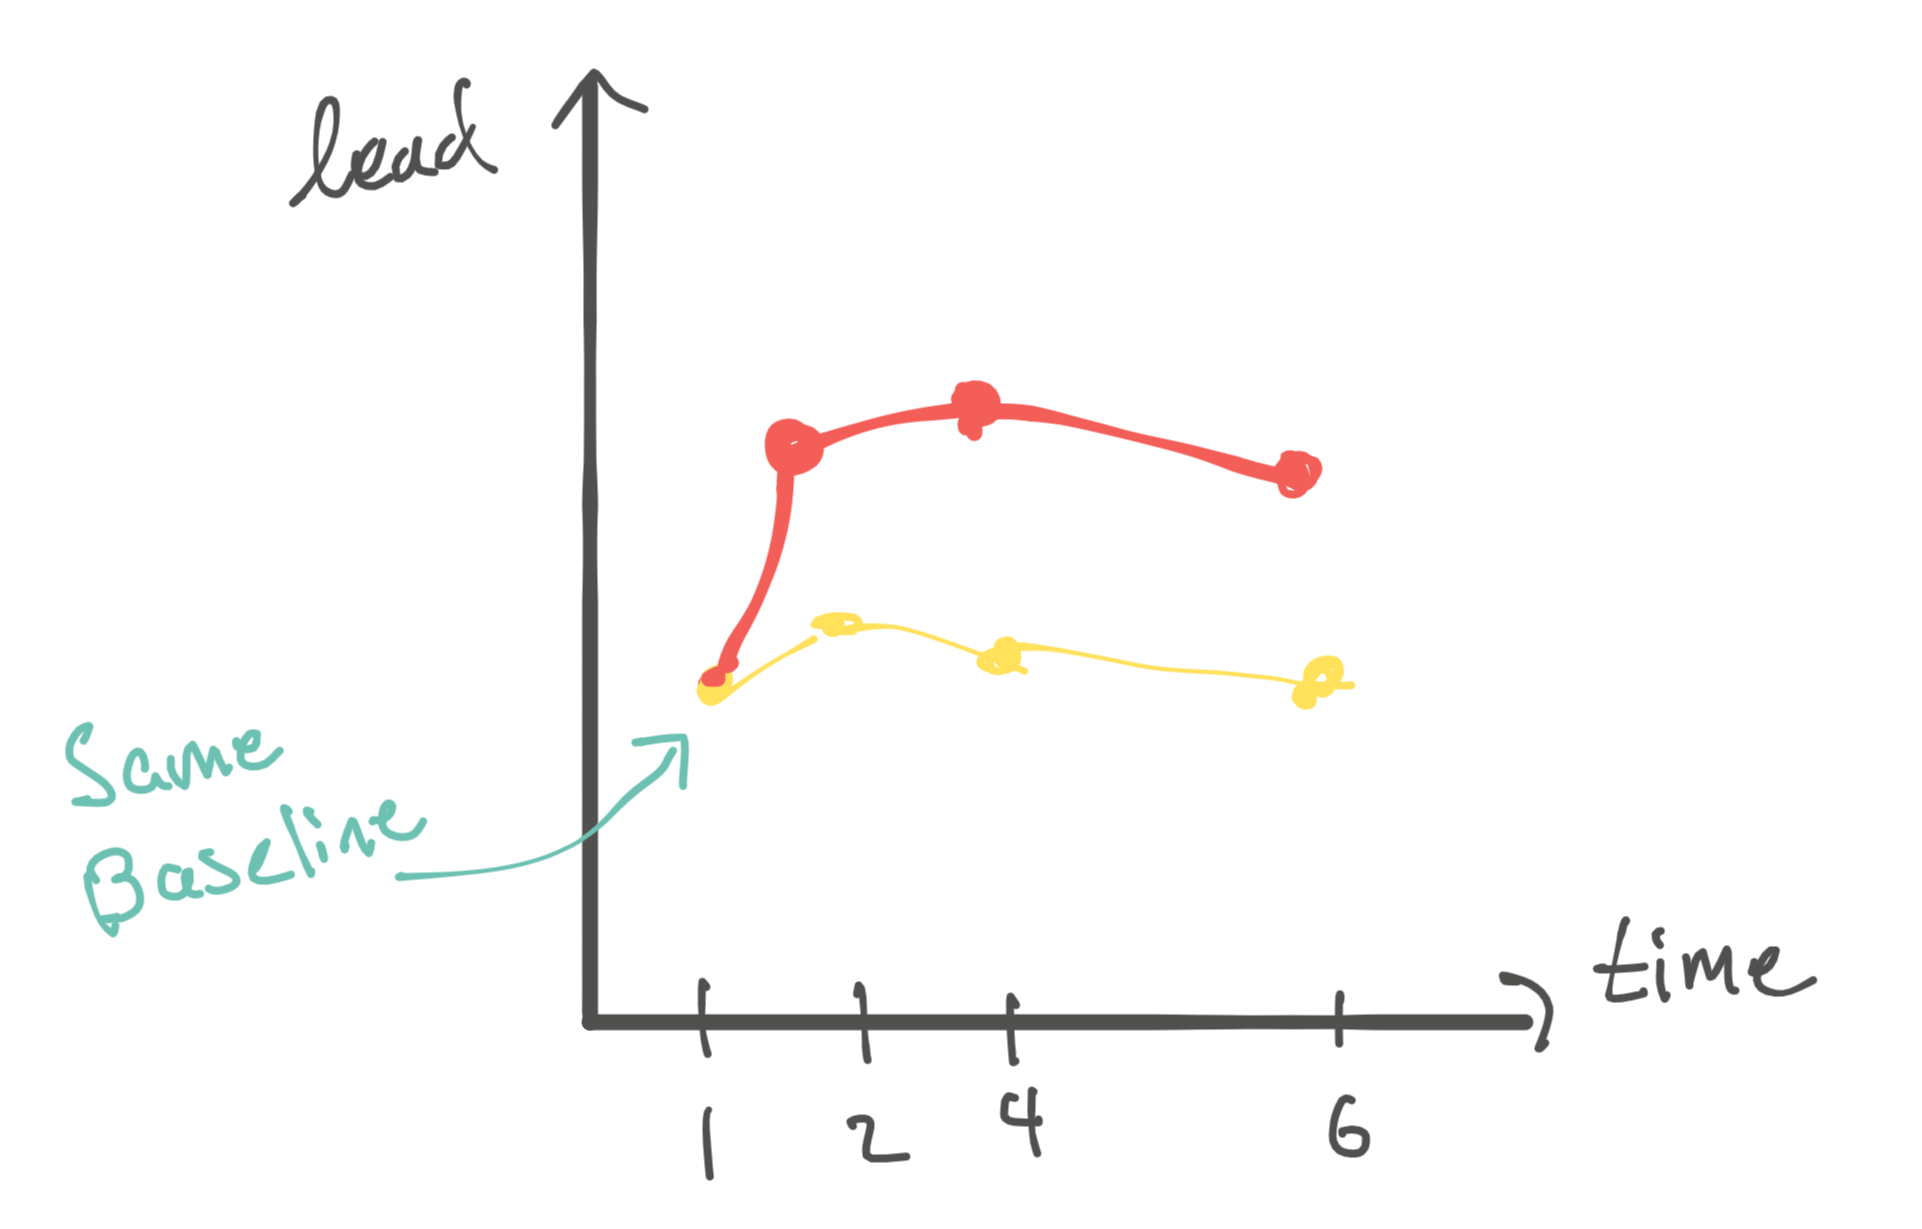 lead
Same
Baseline
time
1 2 4 6